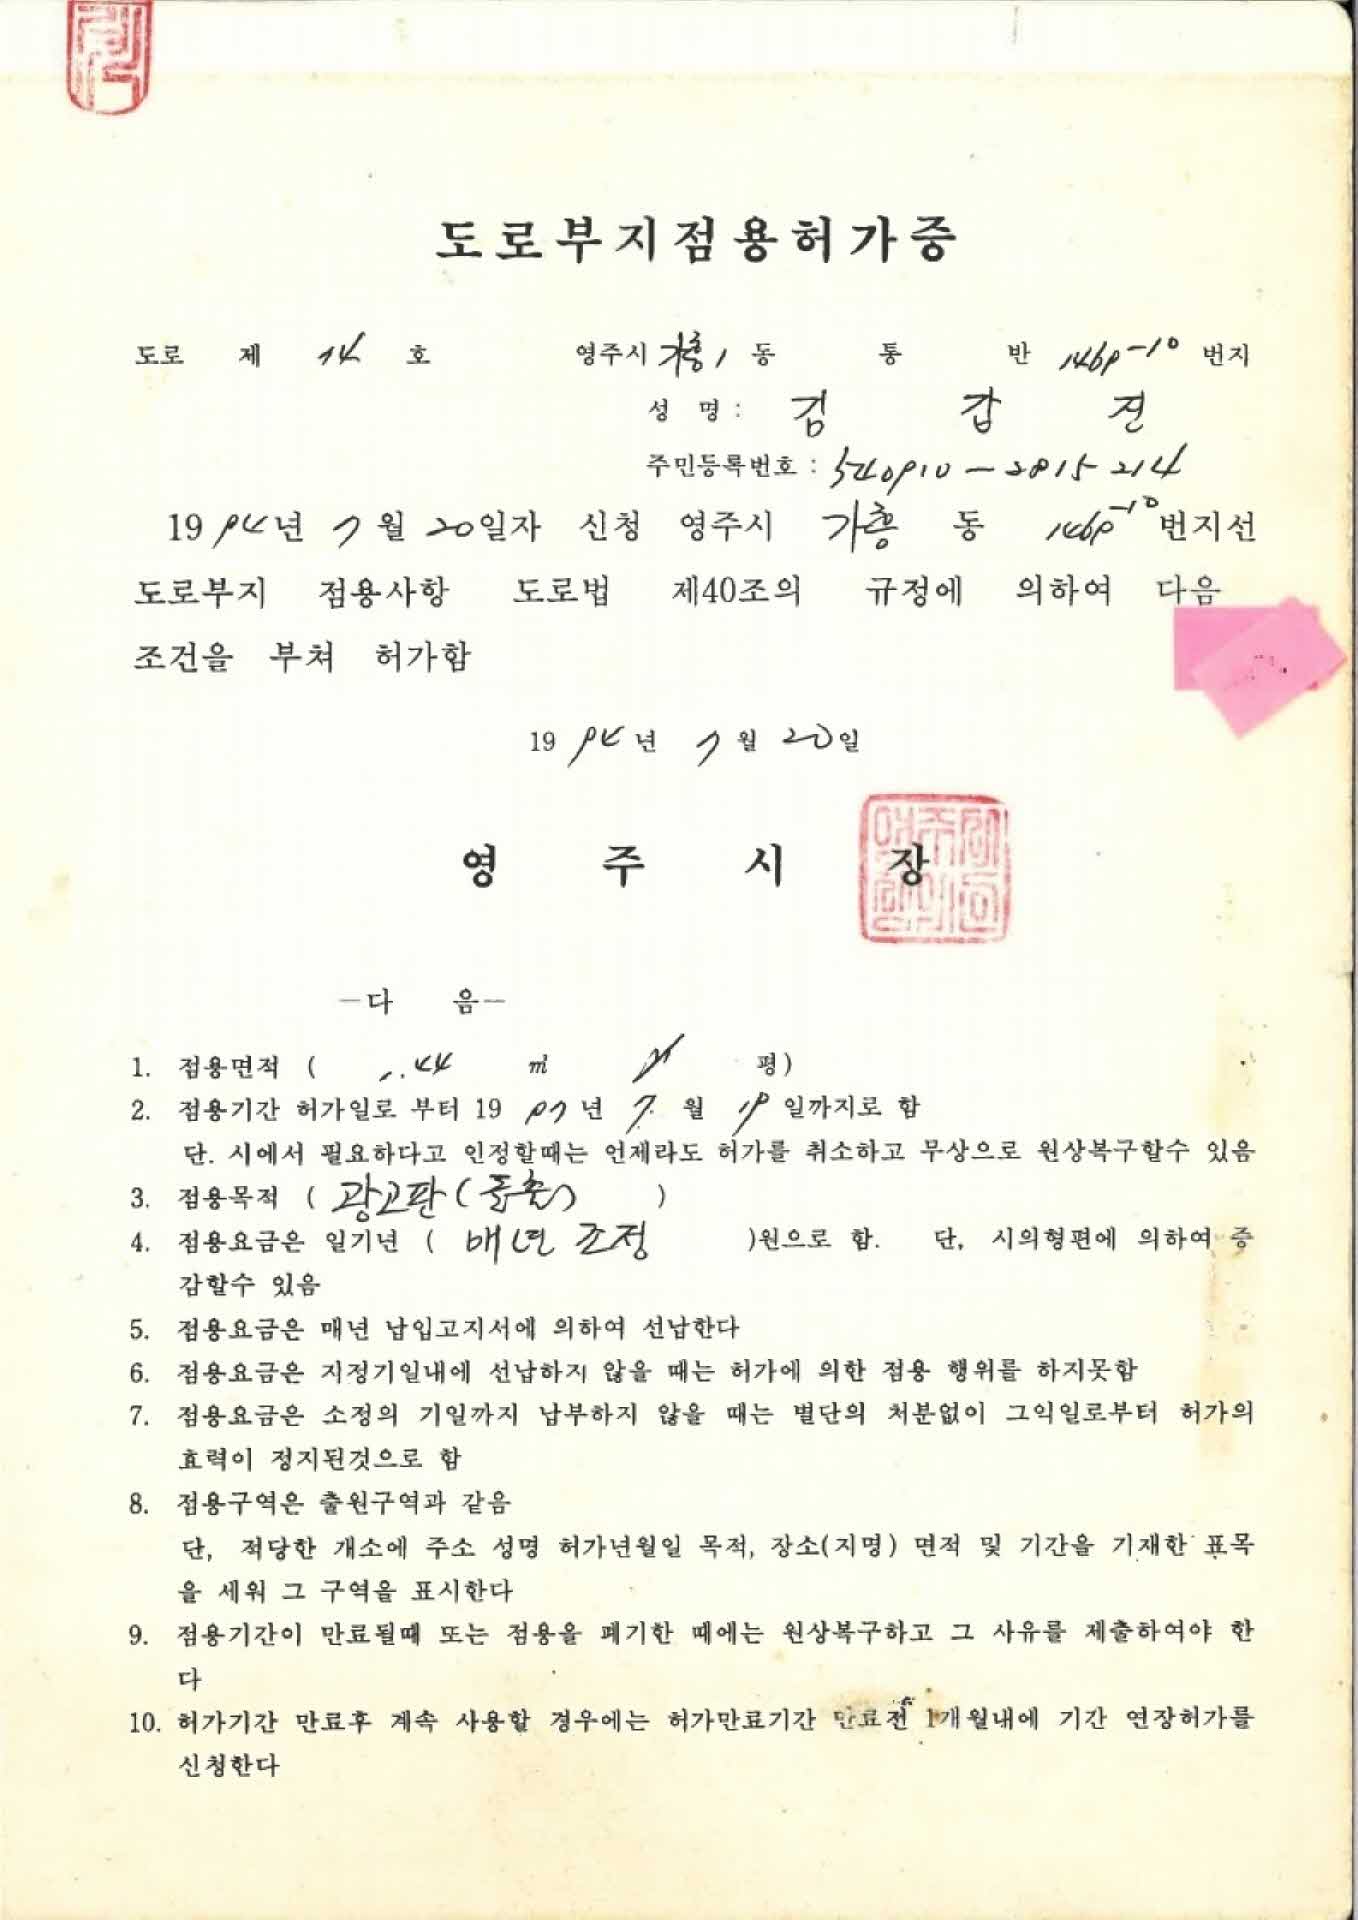 도로부지점용허가증
도로 제 14 호 영주시 가흥1 동 통 반 1469-10 번지
성 명 : 김 갑 진
주민등록번호 : 540910-2815214
1994년 7월 20일자 신청 영주시 가흥 동 1469-10번지선
도로부지 점용사항 도로법 제40조의 규정에 의하여 다음
조건을 부쳐 허가함
1994년 7월 20일
영 주 시 장
-다 음-
1. 점용면적 ( .44 ㎡ 평)
2. 점용기간 허가일로 부터 1997년 7. 월 19일까지로 함
단. 시에서 필요하다고 인정할때는 언제라도 허가를 취소하고 무상으로 원상복구할수 있음
3. 점용목적 ( 광고판(돌출) )
4. 점용요금은 일기년 ( 매년 조정 )원으로 함. 단, 시의형편에 의하여 증
감할수 있음
5. 점용요금은 매년 납입고지서에 의하여 선납한다
6. 점용요금은 지정기일내에 선납하지 않을 때는 허가에 의한 점용 행위를 하지못함
7. 점용요금은 소정의 기일까지 납부하지 않을 때는 별단의 처분없이 그익일로부터 허가의
효력이 정지된것으로 함
8. 점용구역은 출원구역과 같음
단, 적당한 개소에 주소 성명 허가년월일 목적, 장소(지명) 면적 및 기간을 기재한 표목
을 세워 그 구역을 표시한다
9. 점용기간이 만료될때 또는 점용을 폐기한 때에는 원상복구하고 그 사유를 제출하여야 한
다
10. 허가기간 만료후 계속 사용할 경우에는 허가만료기간 만료전 1개월내에 기간 연장허가를
신청한다